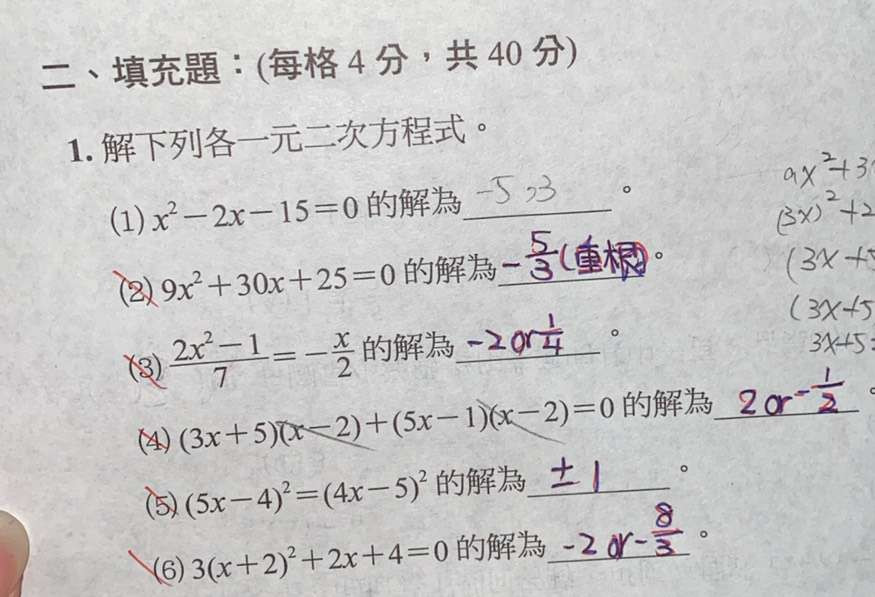 二、填充題：(每格 4 分，共 40 分)
1. 解下列各一元二次方程式。
(1) x² − 2x − 15 = 0 的解為 -5,3 。
(2) 9x² + 30x + 25 = 0 的解為 -5/3 (重根) 。
(3) (2x² − 1)/7 = −x/2 的解為 -2 or 1/4 。
(4) (3x + 5)(x − 2) + (5x − 1)(x − 2) = 0 的解為 2 or -1/2 。
(5) (5x − 4)² = (4x − 5)² 的解為 ±1 。
(6) 3(x + 2)² + 2x + 4 = 0 的解為 -2 or -8/3 。
ax²+3
(3x)²+2
(3x+5
(3x+5
3x+5=